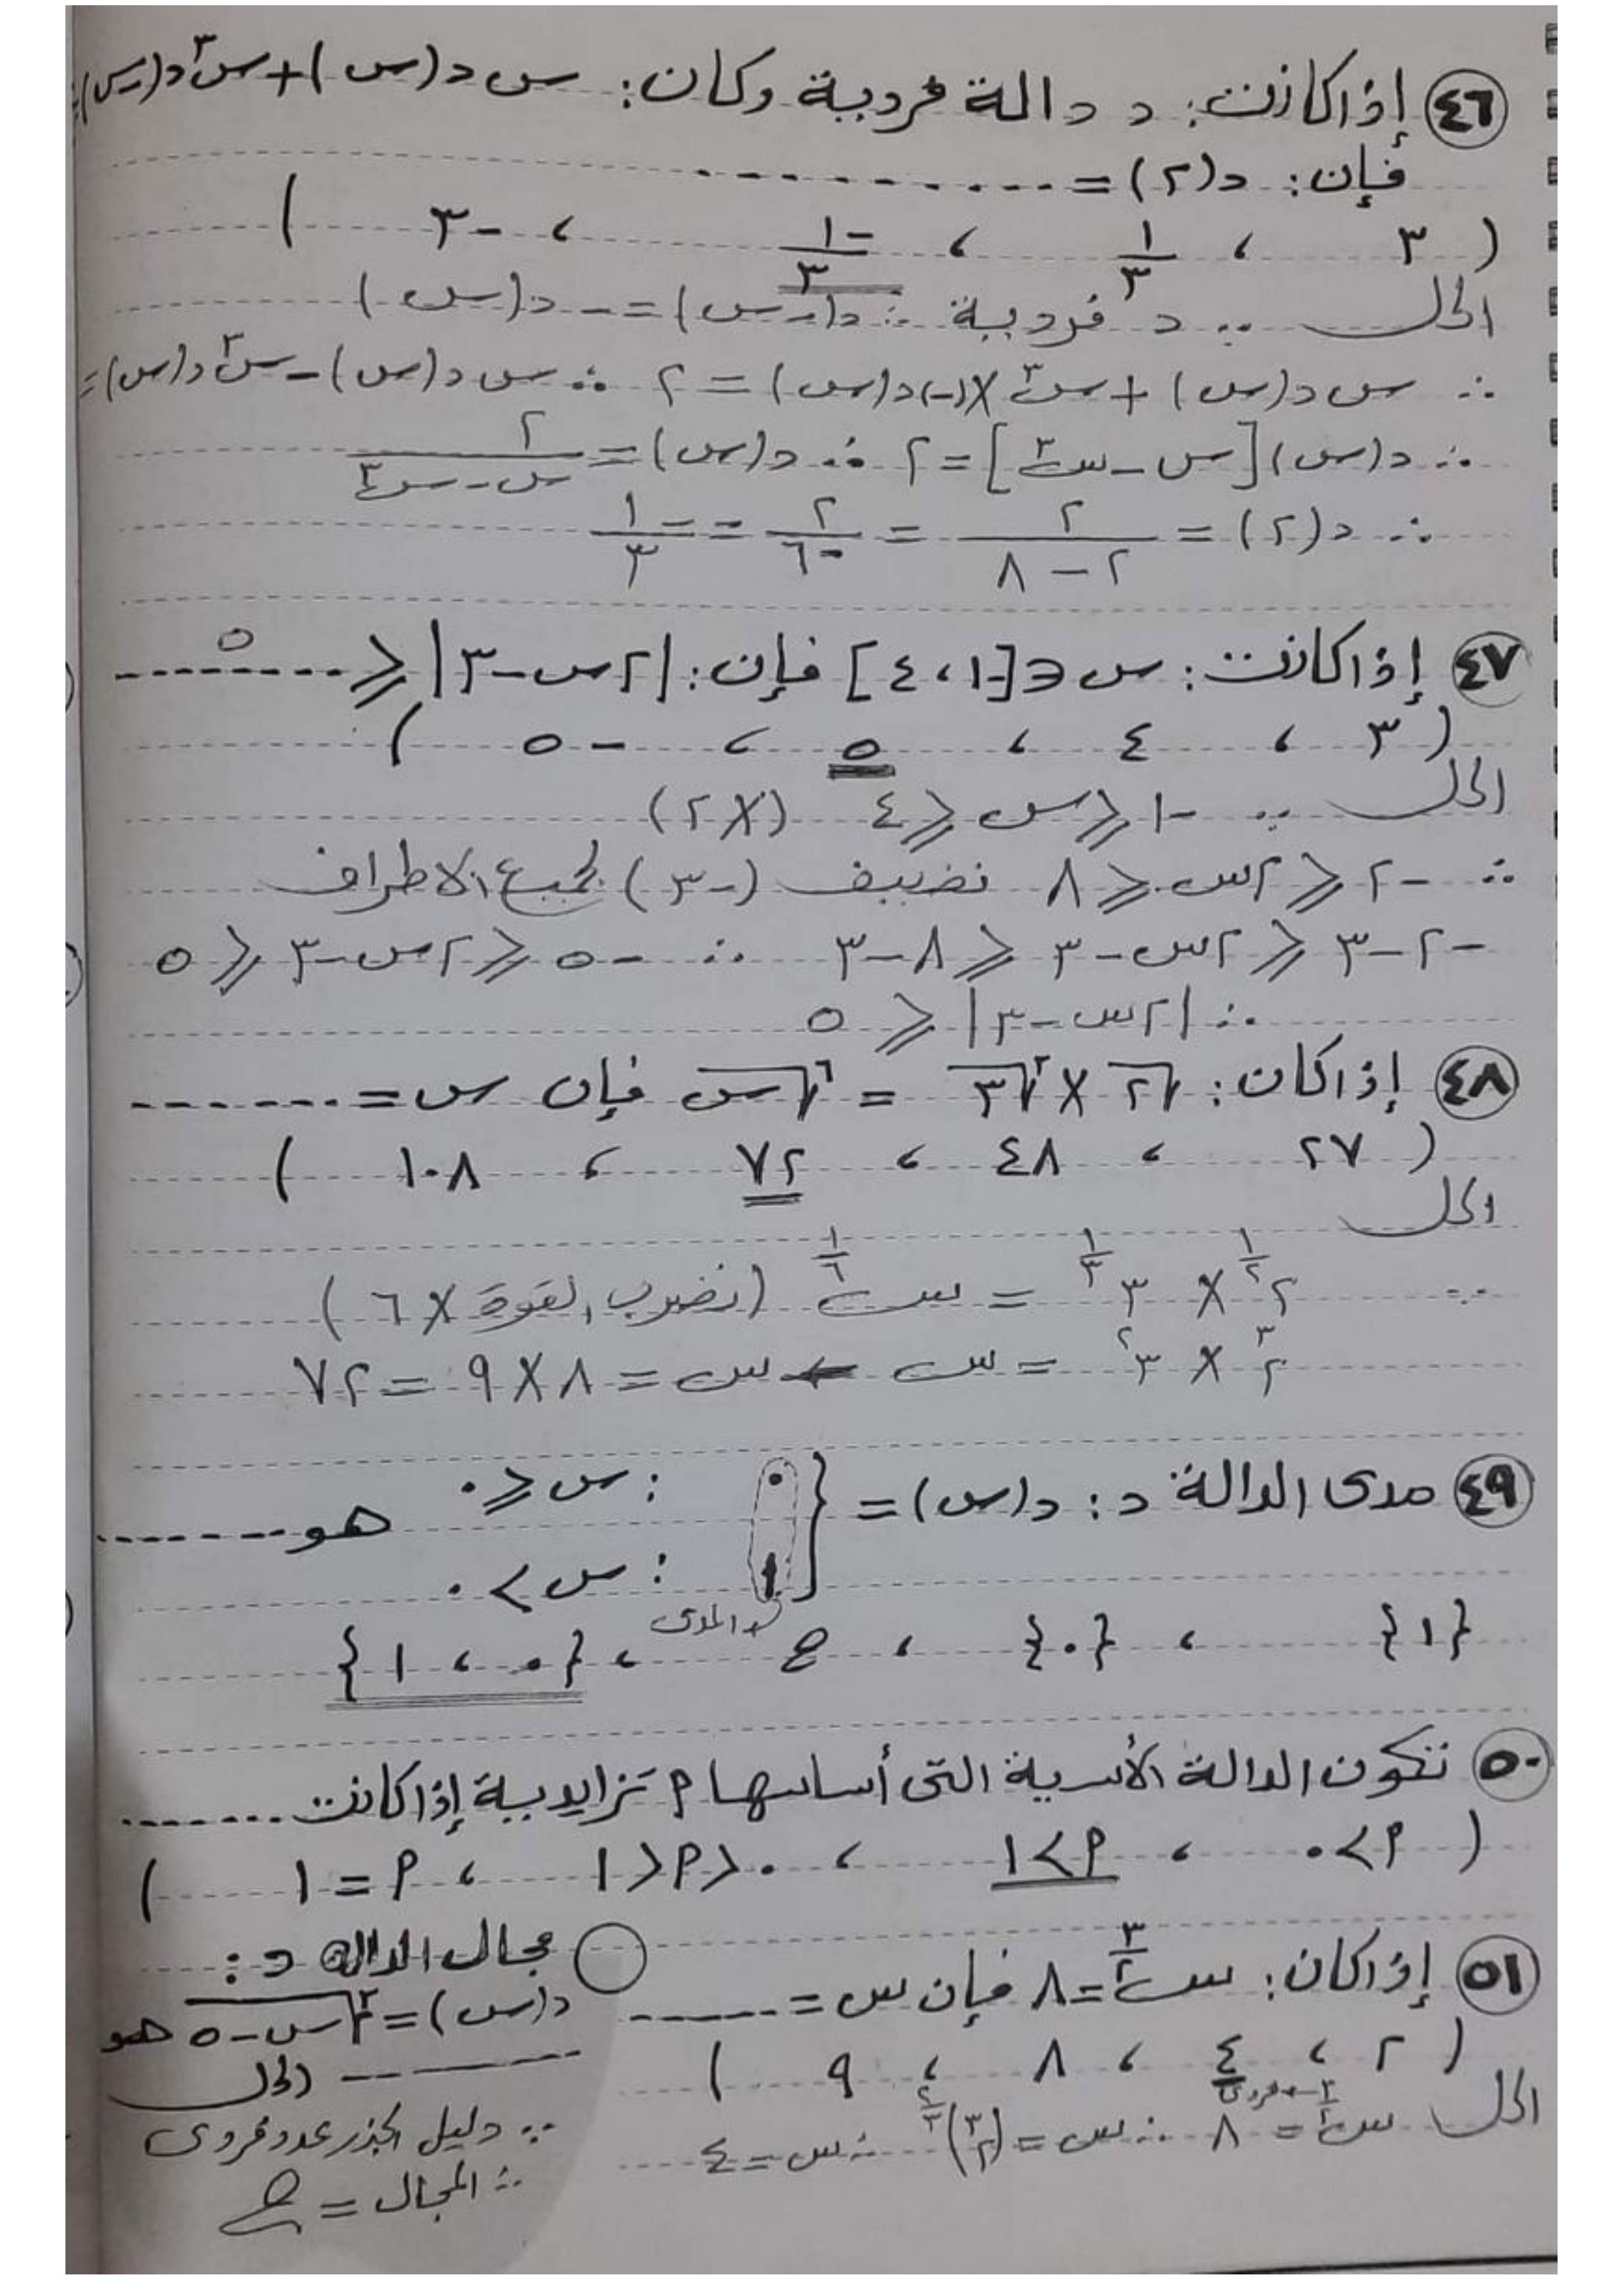 ٤٦ إذا كانت: د دالة فردية وكان: س د(س) + س٣ د(-س) =
فإن: د(٢) = ..........
( ٣ ، ١/٣ ، -١/٣ ، -٣ )
الحل ∵ د فردية ∴ د(-س) = - د(س)
∴ س د(س) + س٣ × (-) د(س) = ٢ ∴ س د(س) - س٣ د(س) =
∴ د(س) [س - س٣] = ٢ ∴ د(س) = ٢/(س - س٣)
∴ د(٢) = ٢/(٢ - ٨) = ٢/-٦ = -١/٣
٤٧ إذا كانت: س ∈ [-١ ، ٤] فإن: |٢س - ٣| ≤ ...٥...
( ٣ ، ٤ ، ٥ ، -٥ )
الحل ∵ -١ ≤ س ≤ ٤ (×٢)
∴ -٢ ≤ ٢س ≤ ٨ نضيف (-٣) لجميع الاطراف
-٢-٣ ≤ ٢س-٣ ≤ ٨-٣ ∴ -٥ ≤ ٢س-٣ ≤ ٥
∴ |٢س-٣| ≤ ٥
٤٨ إذا كان: √٢ × ٣√٣ = ٦√س فإن س = .......
( ٢٧ ، ٤٨ ، ٧٢ ، ١٠٨ )
الحل
∵ ٢^(١/٢) × ٣^(١/٣) = س^(١/٦) (نضرب القوة × ٦)
٢^٣ × ٣^٢ = س ← س = ٨ × ٩ = ٧٢
٤٩ مدى الدالة د: د(س) = { ٠ : س ≤ ٠ هو .......
١ : س > ٠
المدى
{١} ، {٠} ، ح ، {٠ ، ١}
٥٠ تكون الدالة الأسية التى أساسها م تزايدية إذا كانت .......
( م > ٠ ، م > ١ ، ٠ < م < ١ ، م = ١ )
٥١ إذا كان: س^(٣/٢) = ٨ فإن س = ......
( ٢ ، ٤ ، ٨ ، ٩ )
٣ ← فردى
الحل س^(٣/٢) = ٨ ∴ س = (٢^٣)^(٢/٣) ∴ س = ٤
مجال الدالة د:
د(س) = ٣√(س-٥) هو
...... الحل
∵ دليل الجذر عدد فردى
∴ المجال = ح